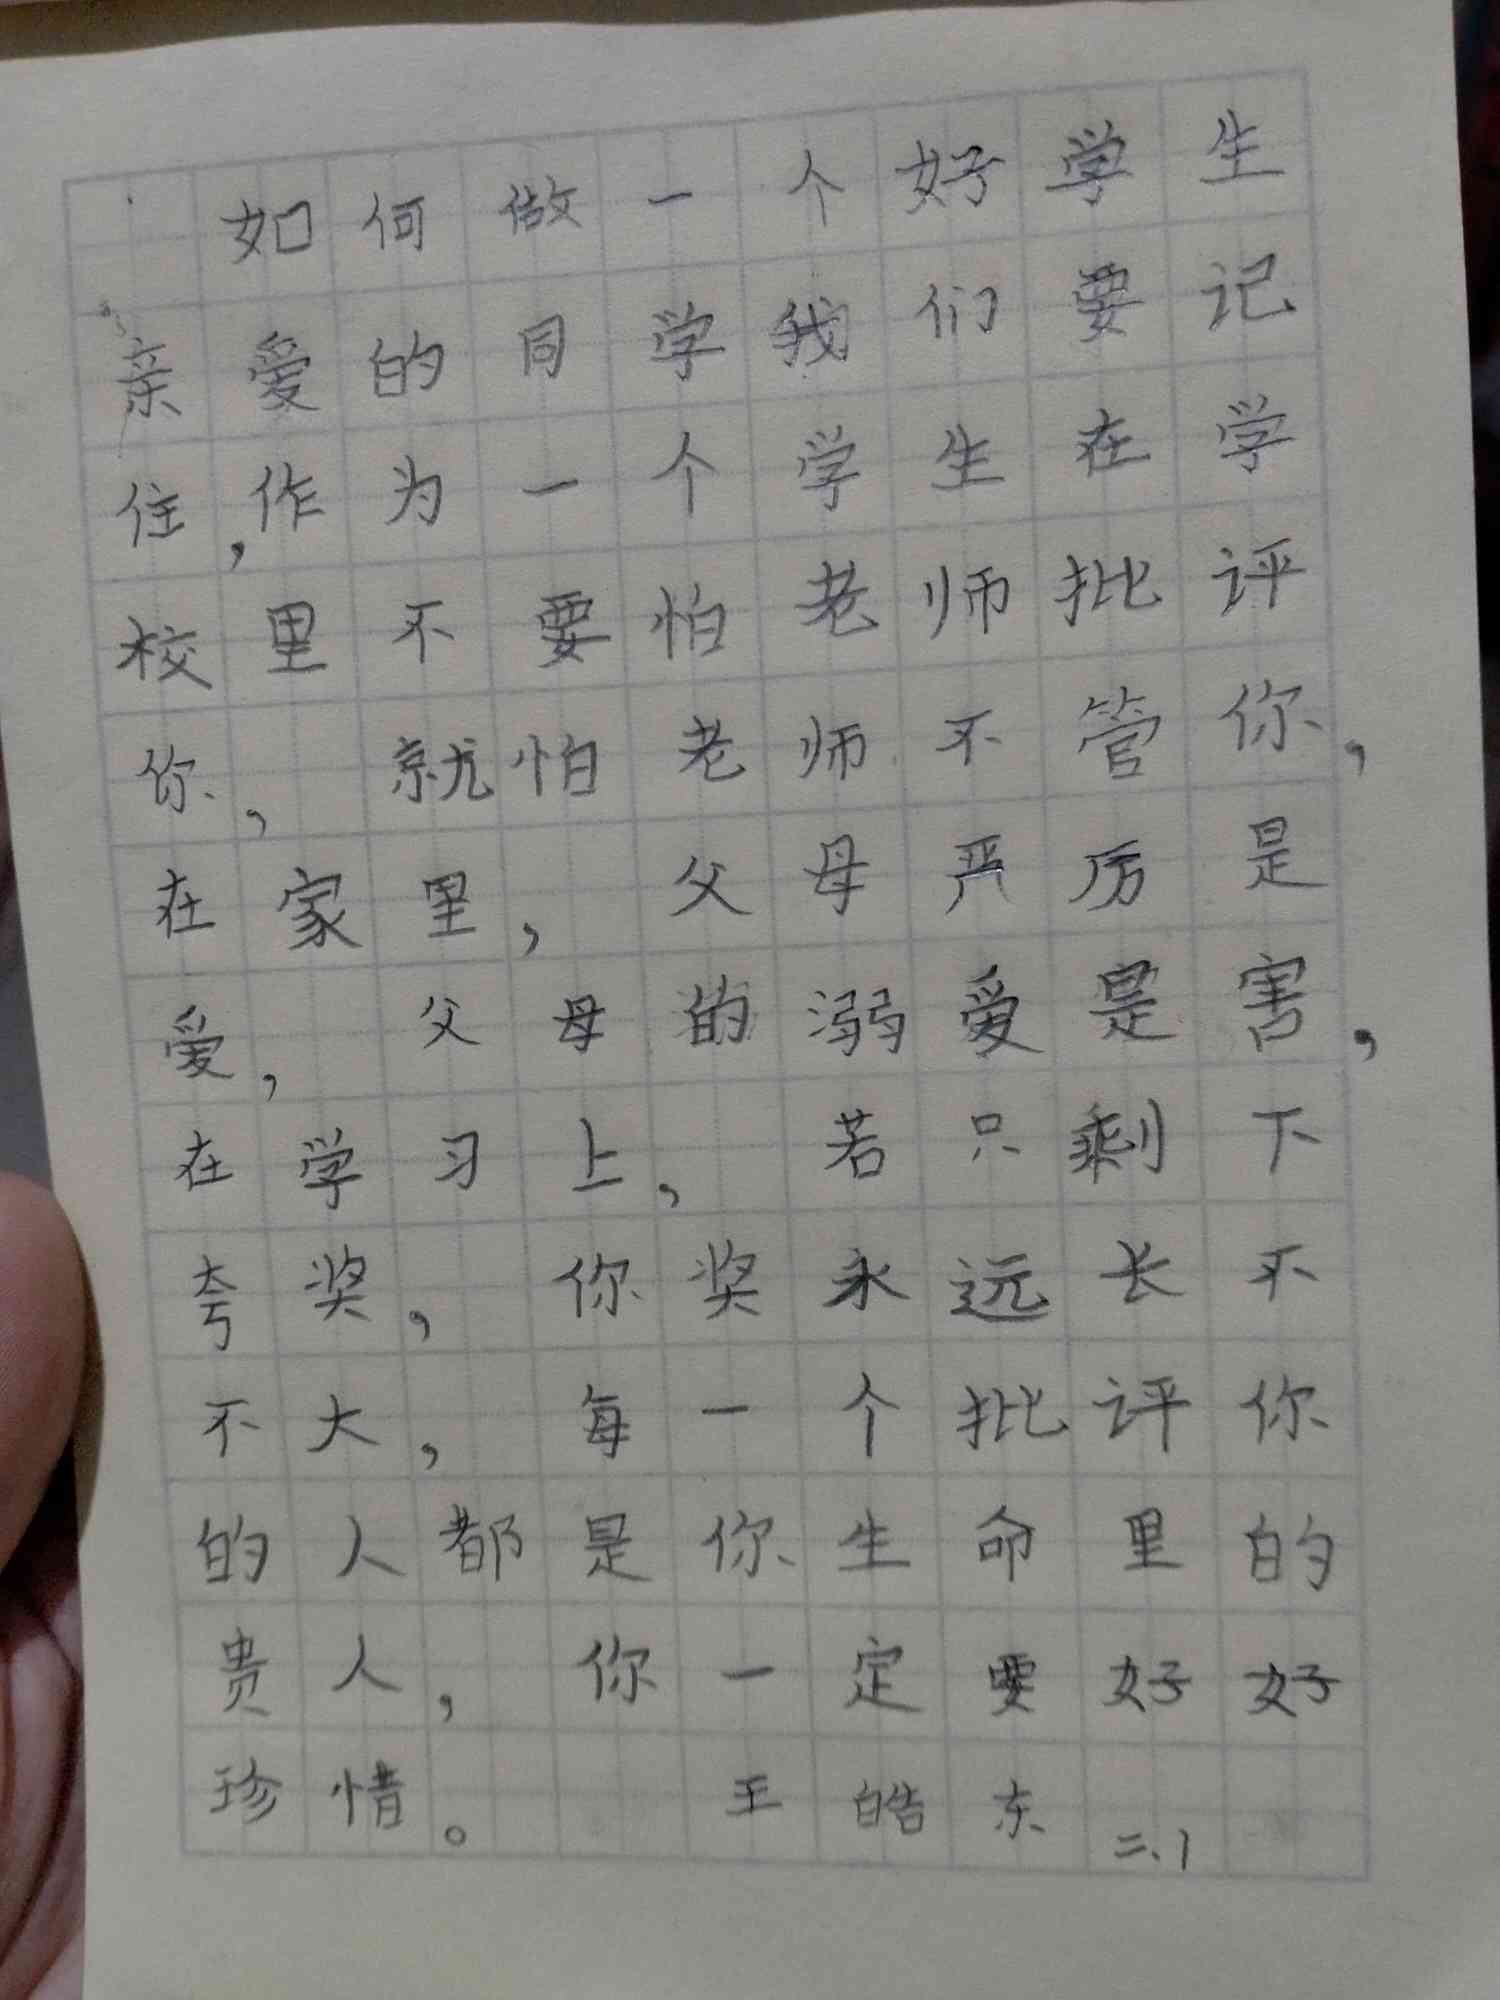 如何做一个好学生
亲爱的同学我们要记
住,作为一个学生在学
校里不要怕老师批评
你,就怕老师不管你,
在家里,父母严厉是
爱,父母的溺爱是害,
在学习上,若只剩下
夸奖,你奖永远长不
不大,每一个批评你
的人都是你生命里的
贵人,你一定要好好
珍惜。 王皓东 二、1